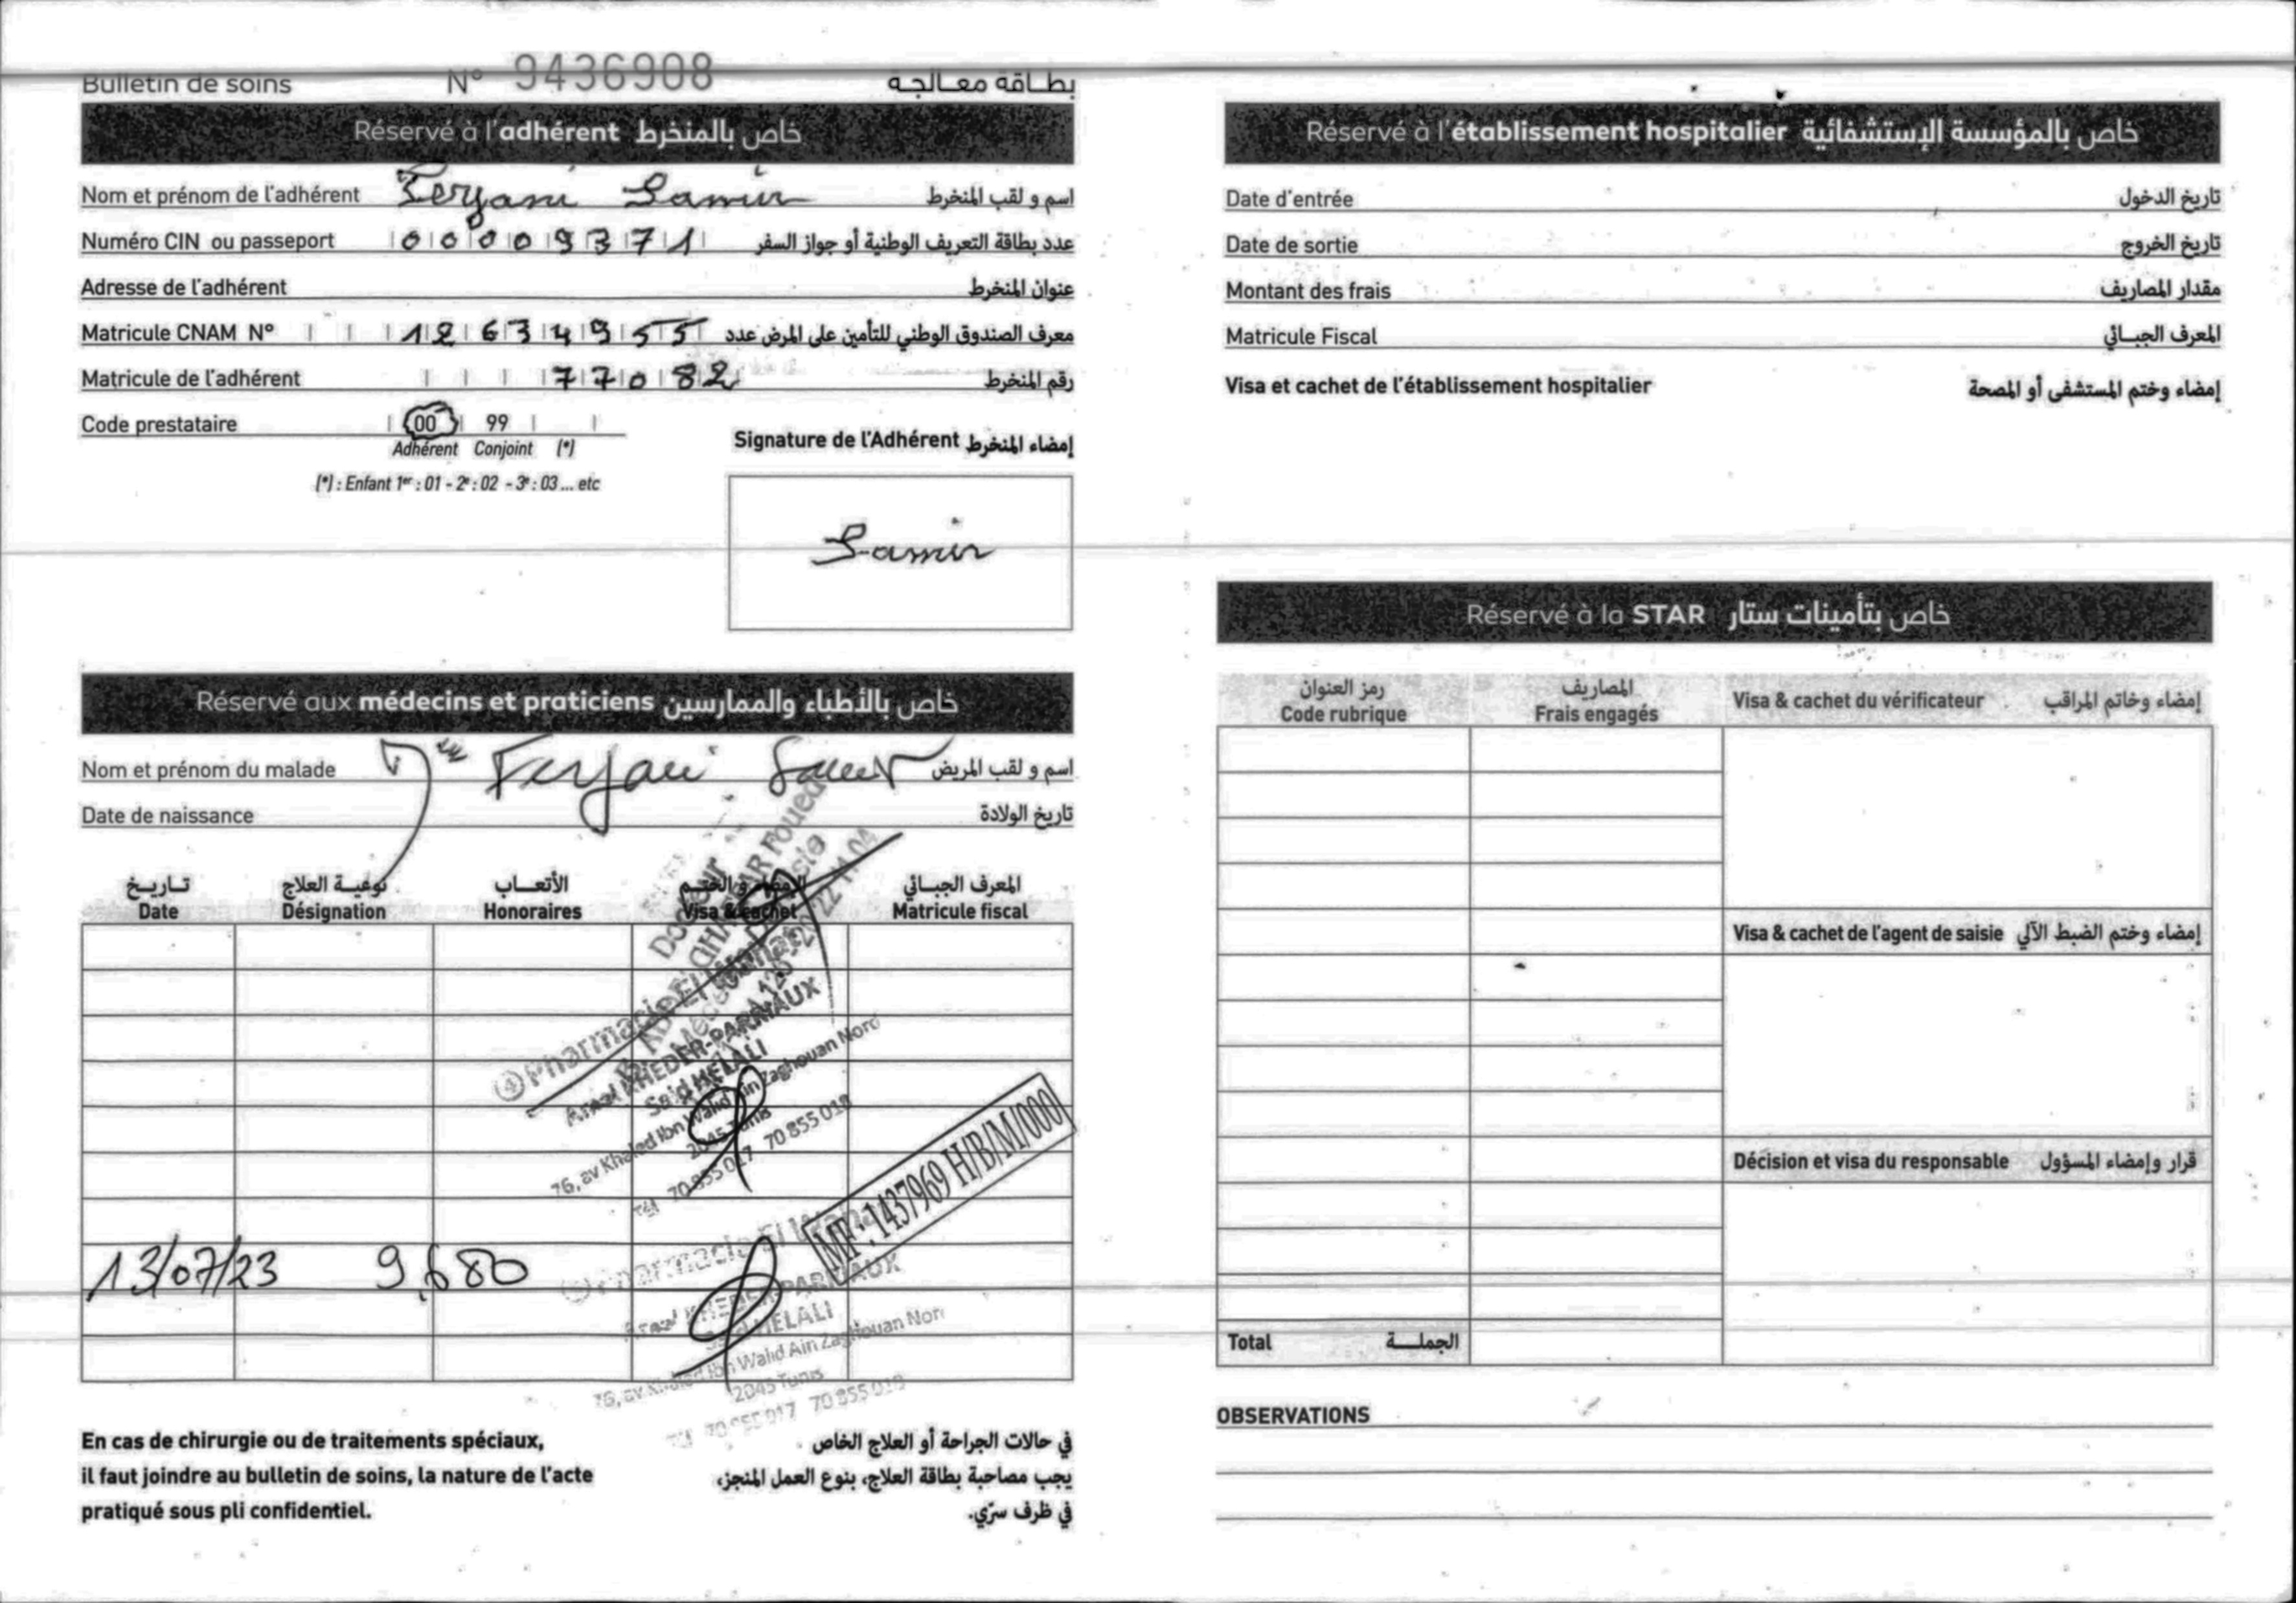 Bulletin de soins N° 9436908 بطاقة معالجة
Réservé à l'adhérent خاص بالمنخرط
Nom et prénom de l'adhérent Ferjani Samir اسم و لقب المنخرط
Numéro CIN ou passeport 00009371 عدد بطاقة التعريف الوطنية أو جواز السفر
Adresse de l'adhérent عنوان المنخرط
Matricule CNAM N° 1263494955 معرف الصندوق الوطني للتأمين على المرض عدد
Matricule de l'adhérent 77082 رقم المنخرط
Code prestataire 00 99
Adhérent Conjoint (*)
(*) : Enfant 1er : 01 - 2e : 02 - 3e : 03 ... etc
Signature de l'Adhérent إمضاء المنخرط
Samir
Réservé aux médecins et praticiens خاص بالأطباء والممارسين
Nom et prénom du malade Ferjani Samir اسم و لقب المريض
Date de naissance تاريخ الولادة
تاريخ نوعية العلاج الأتعاب الإمضاء و الختم المعرف الجبائي
Date Désignation Honoraires Visa & cachet Matricule fiscal
Docteur
Pharmacie El
Amel KHEDER-PARMAUX
Said HELALI
76, av Khaled Ibn Walid Ain Zaghouan Nord
2045 Tunis
Tél 70 855 017 70 855 018
MF : 1437969 H/B/M/000
13/07/23 9,680
Pharmacie El
KHEDER-PARMAUX
HELALI
76, av Khaled Ibn Walid Ain Zaghouan Nord
2045 Tunis
Tél 70 855 017 70 855 018
En cas de chirurgie ou de traitements spéciaux,
il faut joindre au bulletin de soins, la nature de l'acte
pratiqué sous pli confidentiel.
في حالات الجراحة أو العلاج الخاص
يجب مصاحبة بطاقة العلاج، بنوع العمل المنجز،
في ظرف سرّي.
Réservé à l'établissement hospitalier خاص بالمؤسسة الإستشفائية
Date d'entrée تاريخ الدخول
Date de sortie تاريخ الخروج
Montant des frais مقدار المصاريف
Matricule Fiscal المعرف الجبائي
Visa et cachet de l'établissement hospitalier إمضاء وختم المستشفى أو المصحة
Réservé à la STAR خاص بتأمينات ستار
رمز العنوان المصاريف
Code rubrique Frais engagés Visa & cachet du vérificateur إمضاء وخاتم المراقب
Visa & cachet de l'agent de saisie إمضاء وختم الضبط الآلي
Décision et visa du responsable قرار وإمضاء المسؤول
Total الجملة
OBSERVATIONS